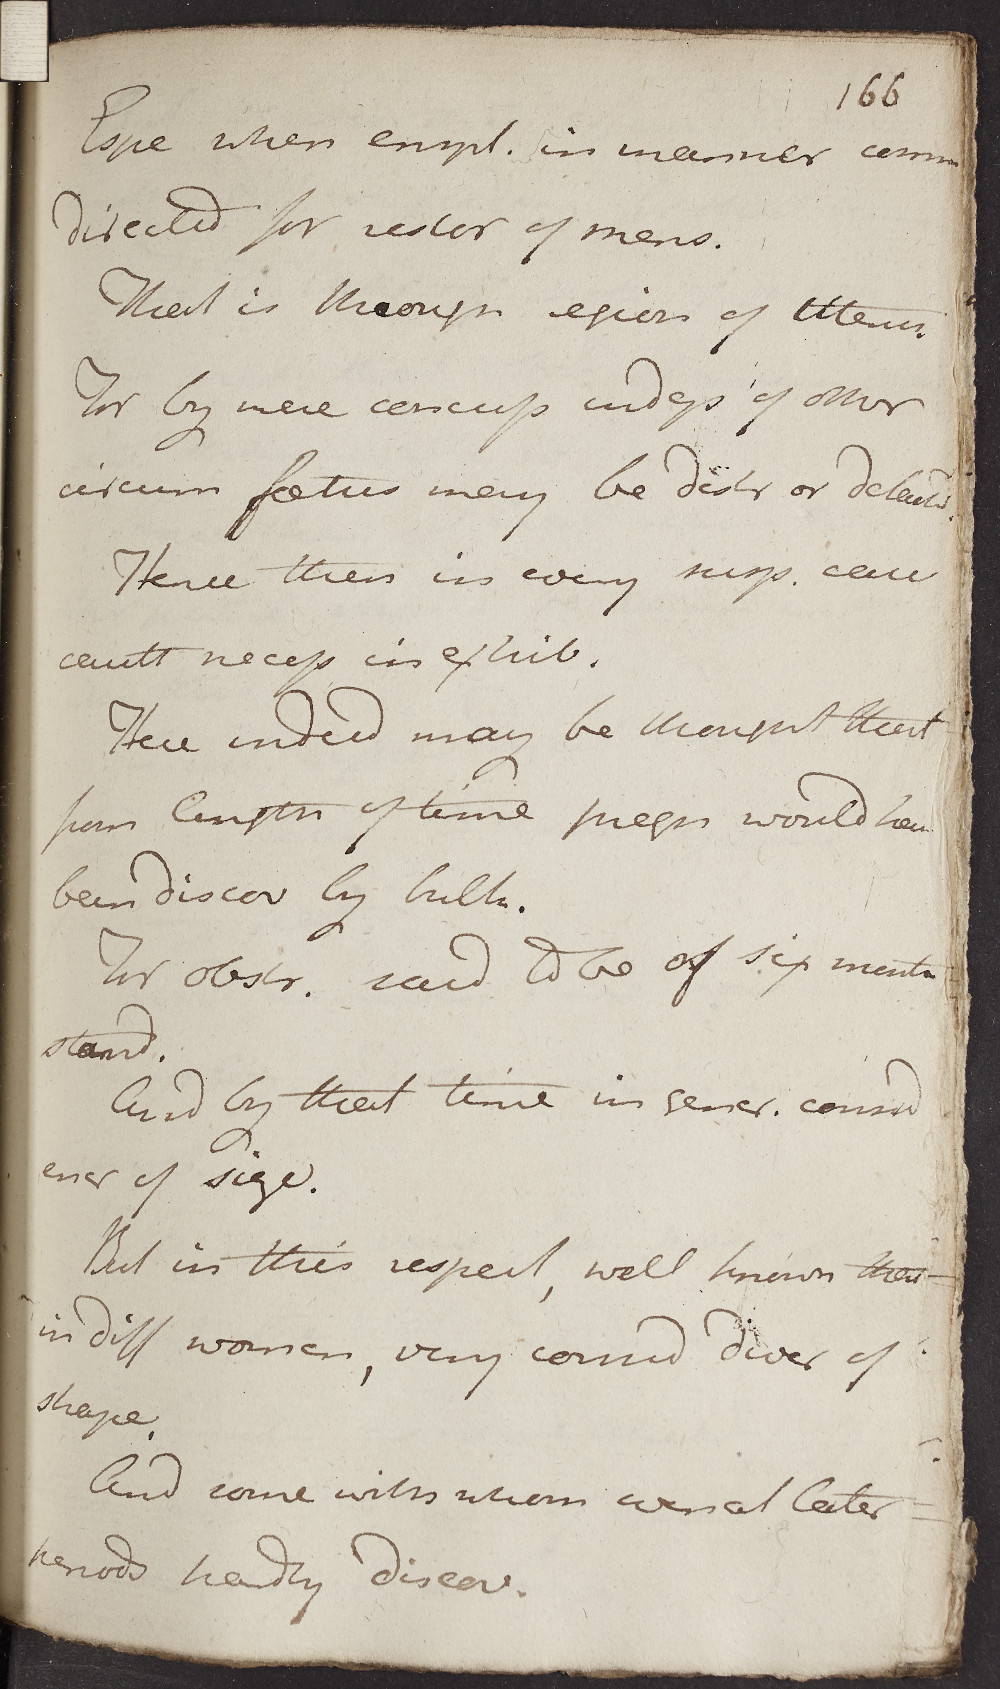 166
Espe when empl. in manner comm
directed for restor of mens.
That is through region of Uterus.
For by mere concuss indep of other
circum foetus may be destr or detach'd.
Hence then in every susp. case
caut necess in exhib.
Here indeed may be thought that
from length of time pregn would have
been discov by bulk.
For obstr. said to be of six month
stand.
And by that time in gener. consid
encr of size.
But in this respect, well known that
in diff women, very consid diver of
shape.
And some with whom even at later
periods hardly discov.